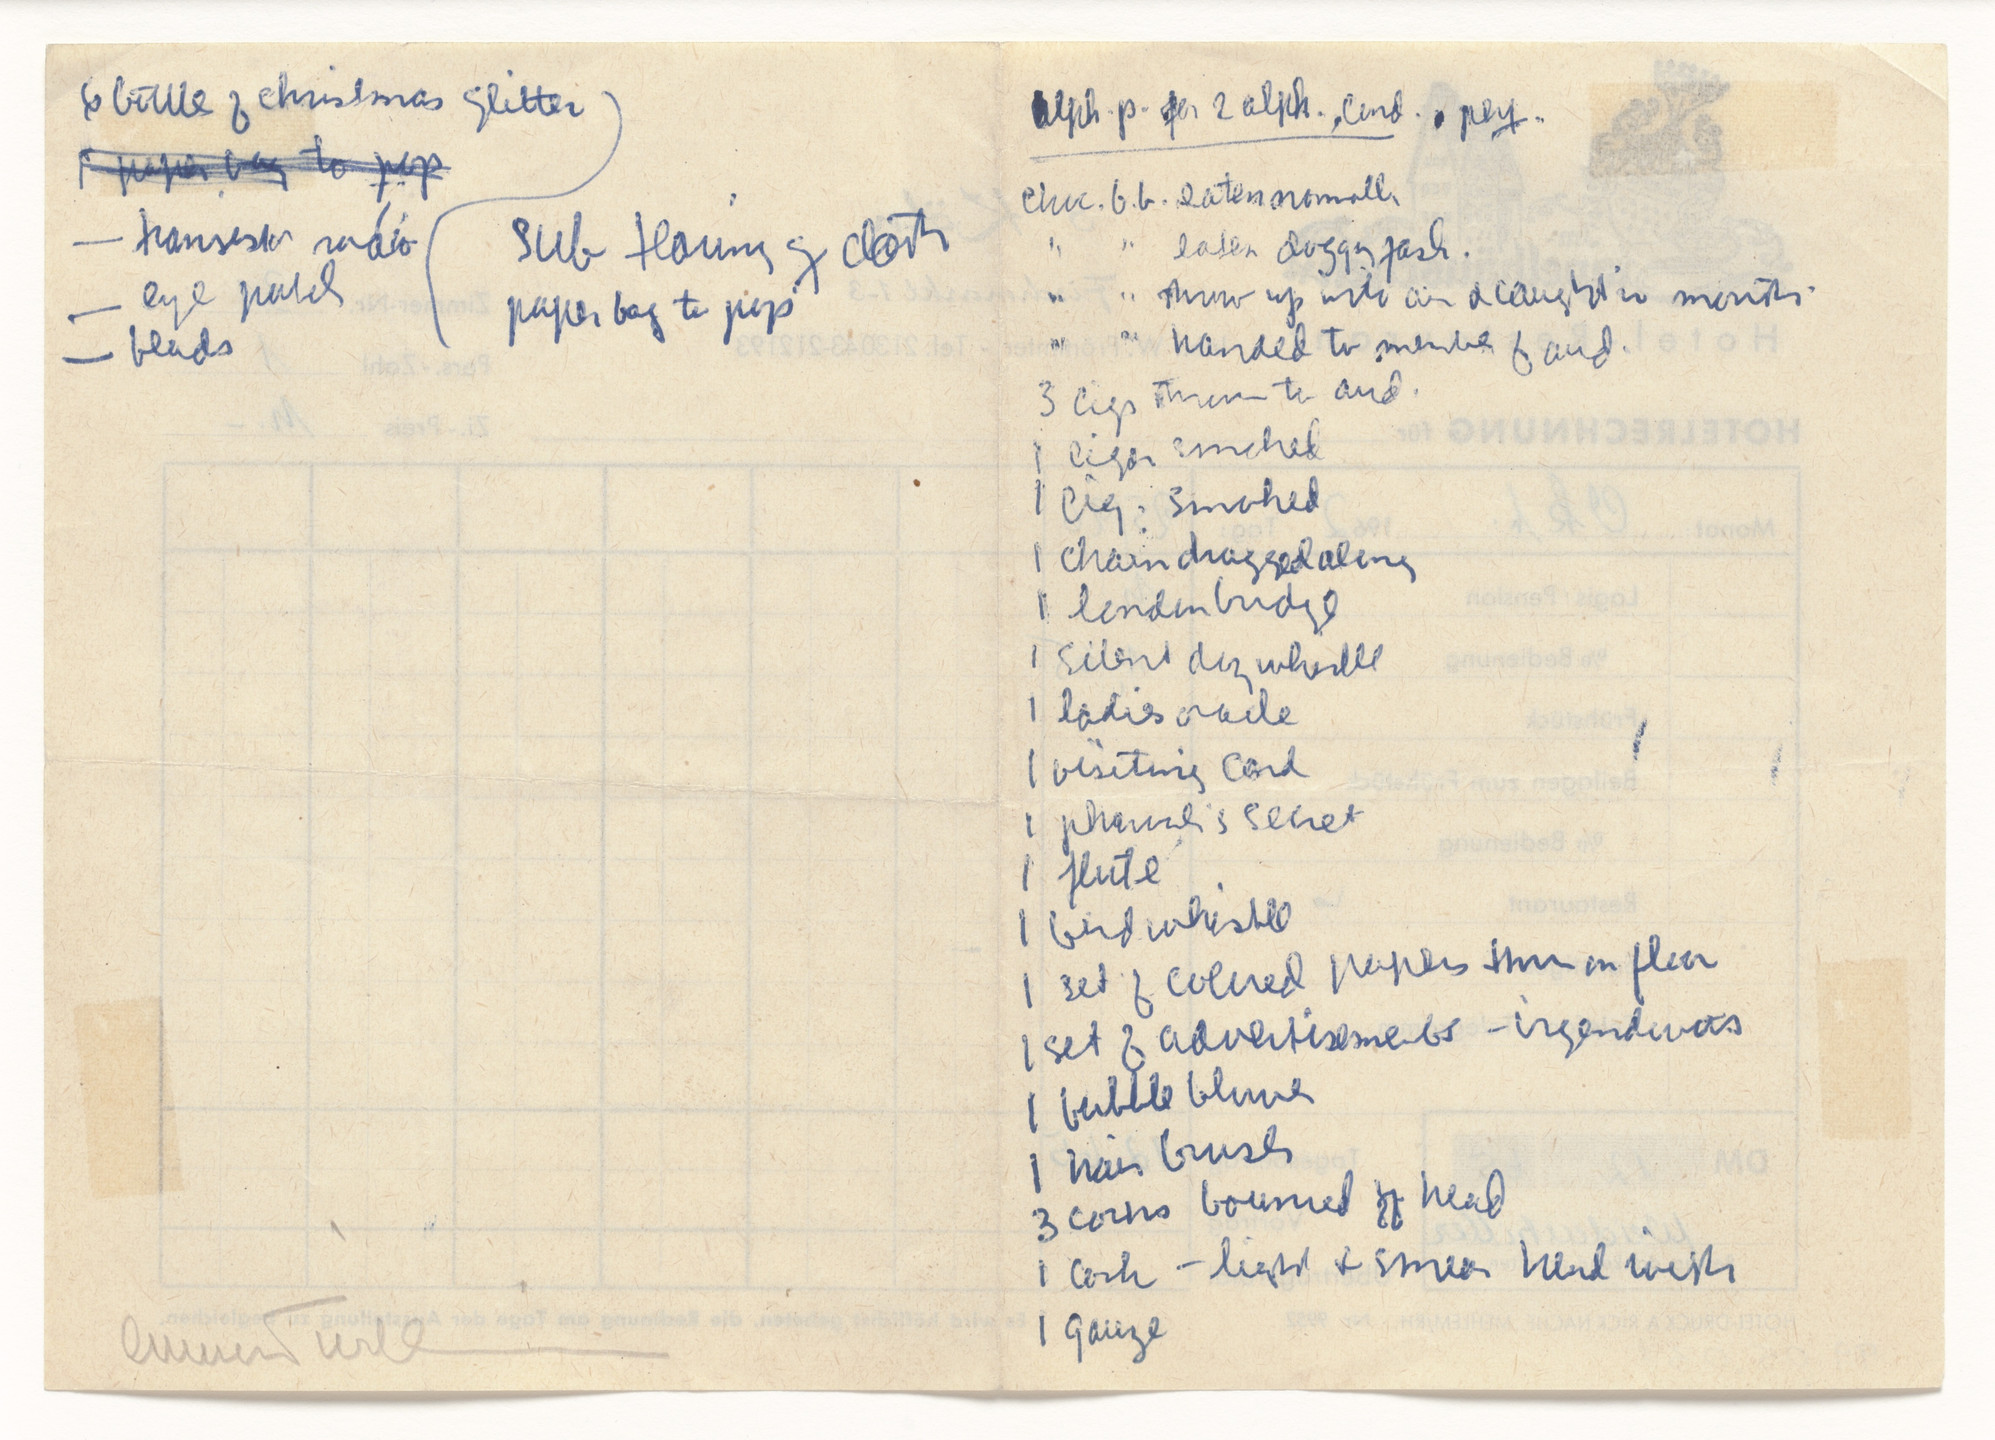 bottle of christmas glitter
1 paper bag to pop
— transistor radio
— eye patch
— beads
sub tearing of cloth
paper bag to pop
alph. p. for 2 alph. cond. perf.
choc. b.b. eaten normall.
" " eaten doggy fash.
" " throw up into air & caught in mouth
" " handed to member of aud.
3 cigs thrown to aud.
1 cigar smoked
1 cig. smoked
1 chain dragged along
1 london bridge
1 silent dog whistle
1 ladies oracle
1 visiting card
1 pharaoh's secret
1 flute
1 bird whistle
1 set of colored papers thrown on floor
1 set of advertisements – irgendwas
1 bubble blower
1 hair brush
3 corks bounced off head
1 cork – light & smear head with
1 gauze
Hotel
Zimmer-Nr.
Pers.-Zahl
Zi.-Preis
HOTELRECHNUNG für
Monat 196 Tag:
Logis / Pension
% Bedienung
Frühstück
Beilagen zum Frühstück
% Bedienung
Restaurant
DM
Vortrag
Es wird höflichst gebeten, die Rechnung am Tage der Ausstellung zu begleichen.